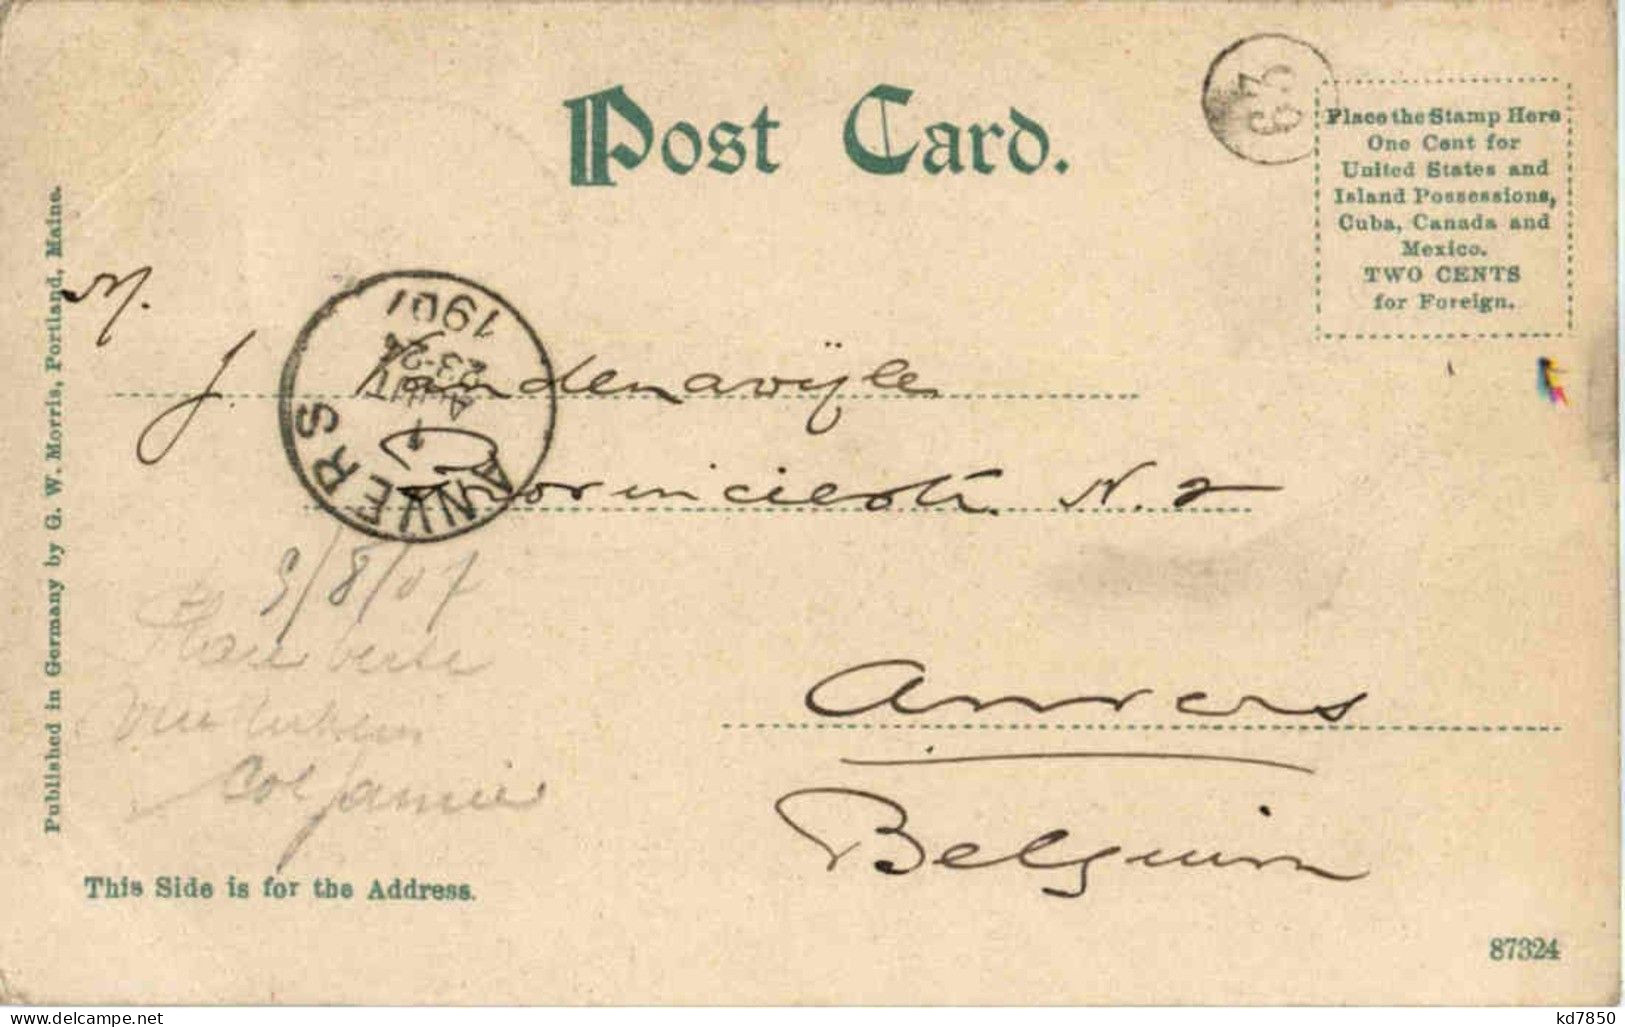 Post Card.
63
Place the Stamp Here
One Cent for
United States and
Island Possessions,
Cuba, Canada and
Mexico.
TWO CENTS
for Foreign.
M.
J. Vandenawÿle
Provinciestr. N. 2
Anvers
Belgium
ANVERS
1901
23-24
AOUT
9/8/07
This Side is for the Address.
Published in Germany by G. W. Morris, Portland, Maine.
87324
kd7850
www.delcampe.net